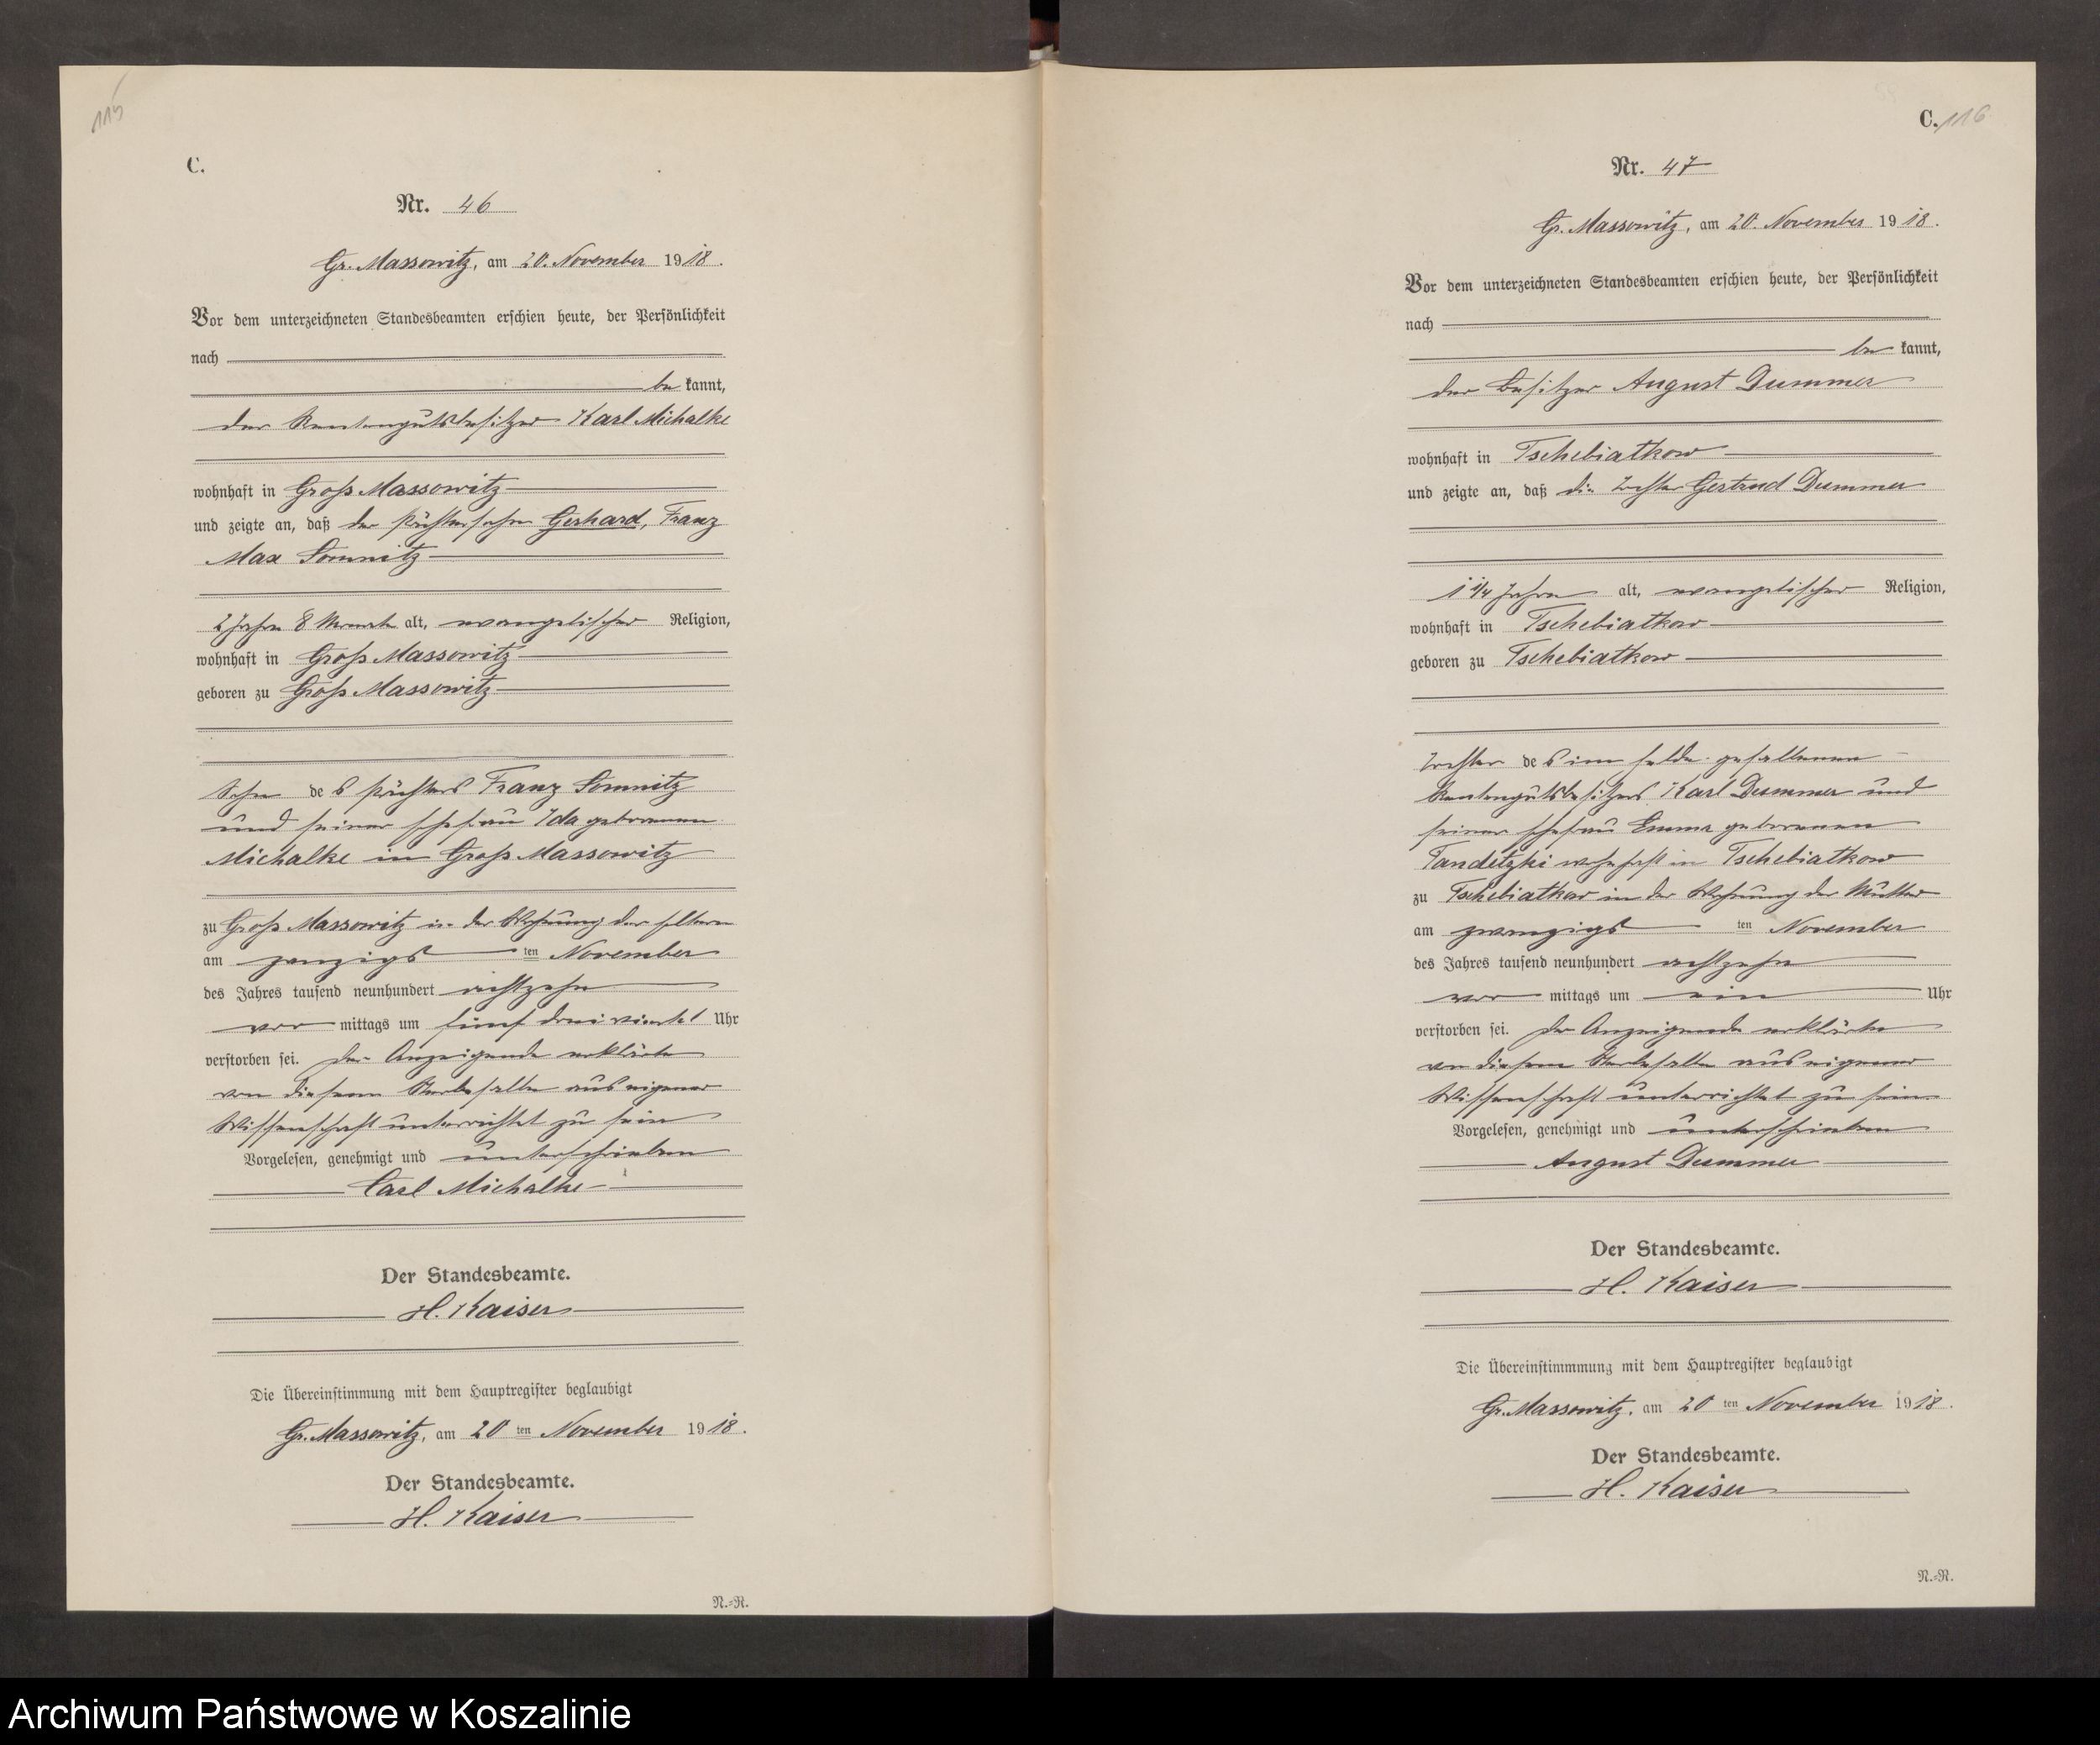 115
C.
Nr. 46
Gr. Massowitz, am 20. November 1918.
Vor dem unterzeichneten Standesbeamten erschien heute, der Persönlichkeit
nach
be kannt,
der Rentengutsbesitzer Karl Michalke
wohnhaft in Groß Massowitz
und zeigte an, daß der Pächtersohn Gerhard, Franz
Max Somnitz
2 Jahre 8 Monate alt, evangelischer Religion,
wohnhaft in Groß Massowitz
geboren zu Groß Massowitz
Sohn des Pächters Franz Somnitz
und seiner Ehefrau Ida geborenen
Michalke in Groß Massowitz
zu Groß Massowitz in der Wohnung der Eltern
am zanzigst ten November
des Jahres tausend neunhundert achtzehn
vor mittags um fünf drei viertel Uhr
verstorben sei. Der Anzeigende erklärte
von diesem Sterbefalle aus eigener
Wissenschaft unterrichtet zu sein
Vorgelesen, genehmigt und unterschrieben
Carl Michalke
Der Standesbeamte.
H. Kaiser
Die Übereinstimmung mit dem Hauptregister beglaubigt
Gr. Massowitz, am 20 ten November 1918.
Der Standesbeamte.
H. Kaiser
N.=R.
C. 116
Nr. 47
Gr. Massowitz, am 20. November 1918.
Vor dem unterzeichneten Standesbeamten erschien heute, der Persönlichkeit
nach
be kannt,
der Besitzer August Dummer
wohnhaft in Tschebiatkow
und zeigte an, daß die Tochter Gertrud Dummer
1 1/4 Jahre alt, evangelischer Religion,
wohnhaft in Tschebiatkow
geboren zu Tschebiatkow
Tochter des im Felde gefallenen
Rentengutsbesitzers Karl Dummer und
seiner Ehefrau Emma geborenen
Tandetzki wohnhaft in Tschebiatkow
zu Tschebiatkow in der Wohnung der Mutter
am zwanzigst ten November
des Jahres tausend neunhundert achtzehn
vor mittags um ein Uhr
verstorben sei. Der Anzeigende erklärte
von diesem Sterbefalle aus eigener
Wissenschaft unterrichtet zu sein
Vorgelesen, genehmigt und unterschrieben
August Dummer
Der Standesbeamte.
H. Kaiser
Die Übereinstimmmung mit dem Hauptregister beglaubigt
Gr. Massowitz, am 20 ten November 1918.
Der Standesbeamte.
H. Kaiser
N.=R.
Archiwum Państwowe w Koszalinie